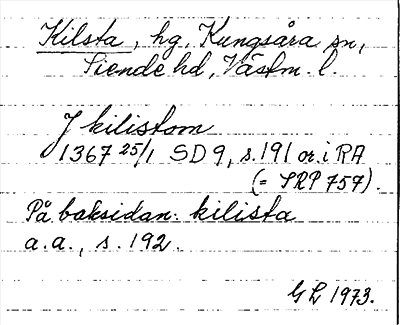 Kilsta, hg, Kungsåra sn,
Siende hd, Västm. l.
J kilistom
1367 25/1 SD 9, s. 191 or. i RA
(= SRP 757).
På baksidan: kilista
a.a., s. 192.
GL 1973.